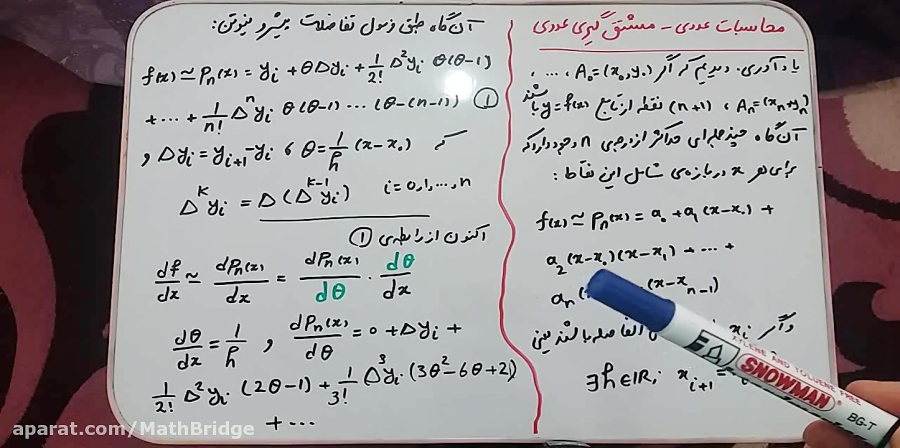 محاسبات عددی - مشتق گیری عددی
یادآوری. دیدیم که اگر A₀=(x₀,y₀) ، ... ،
Aₙ=(xₙ+yₙ) ، (n+1) نقطه از تابع y=f(x) باشند
آن گاه چندجمله‌ای حداکثر از درجه‌ی n وجود دارد که
برای هر x در بازه‌ی شامل این نقاط :
f(x) ≃ Pₙ(x) = a₀ + a₁(x-x₀) +
a₂(x-x₀)(x-x₁) + ... +
aₙ( (x-xₙ₋₁)
و اگر xᵢ الفاصله باشند یعنی
∃h∈ℝ; xᵢ₊₁ =
آن گاه طبق فرمول تفاضلات پیشرو نیوتن :
f(x) ≃ Pₙ(x) = yᵢ + θΔyᵢ + 1/2! Δ²yᵢ θ(θ-1)
+ ... + 1/n! Δⁿyᵢ θ(θ-1) ... (θ-(n-1)) ①
که θ = 1/h (x-x₀) ، Δyᵢ = yᵢ₊₁ - yᵢ ,
Δᵏyᵢ = Δ(Δᵏ⁻¹yᵢ) i=0,1,...,n
اکنون از رابطه‌ی ①
df/dx ≃ dPₙ(x)/dx = dPₙ(x)/dθ · dθ/dx
dθ/dx = 1/h , dPₙ(x)/dθ = 0 + Δyᵢ +
1/2! Δ²yᵢ (2θ-1) + 1/3! Δ³yᵢ (3θ²-6θ+2)
+ ...
XYLENE AND TOLUENE FREE
SNOWMAN
BG-T
aparat.com/MathBridge